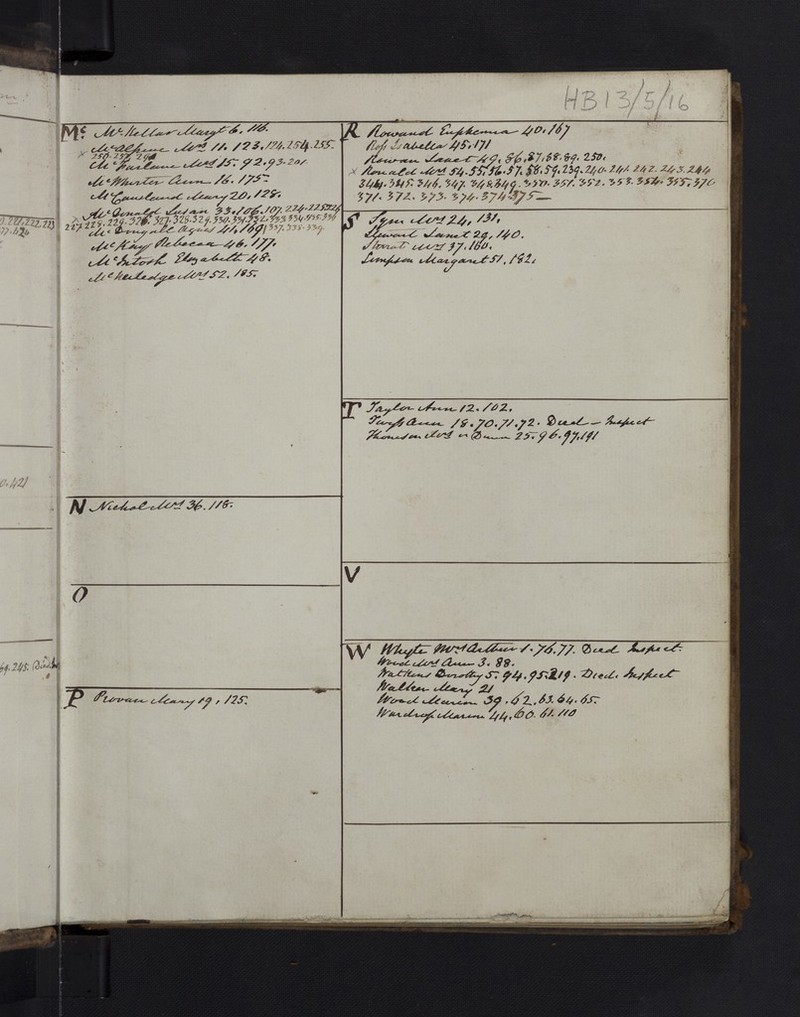 HB13/5/16
Mc McKellar Margt 6. 116.
× McAlpine Mrs 11. 123. 124. 254. 255.
McFarlane Mrs 15. 92. 93. 201.
McWhirter Ann 16. 175
McCausland Mary 20. 128.
× McDonald Susan 33. 106. 107. 224. 225
McDingall Agnes 41. 169
McKay Rebecca 46. 177.
McIntosh Elizabeth 48.
Mrs 52. 185.
N Nichol Mrs 36. 118.
O
P Provan Mary 19. 125.
R Rowand Euphemia 40. 167
Ross Isabella 45. 171
Rowan Janet 49. 86. 87. 88. 89. 250.
× Ronald Mrs 54. 55. 56. 57. 58. 59. 239. 240. 241. 242. 243. 244
344. 345. 346. 347. 348. 349. 350. 351. 352. 353. 354. 355. 370
371. 372. 373. 374. 374. 375
S Mrs 24. 131.
Stewart Janet 29. 140.
Mrs 37. 160.
Simpson Margaret 51. 182.
T Taylor Ann 12. 102.
Ann 18. 70. 71. 72. Died – Inspect
Thomson Mrs or Dunn 25. 96. 97. 191
V
W Whyte Mrs Arthur 1. 76. 77. Died Inspect.
Wood Mrs Ann 3. 88.
Watkins Dorothy 5. 94. 95. 219. Died. Inspect
Walker Mary 21
Wood Marion 39. 62. 63. 64. 65.
Wardrop Marion 44. 60. 61. 110
0.421